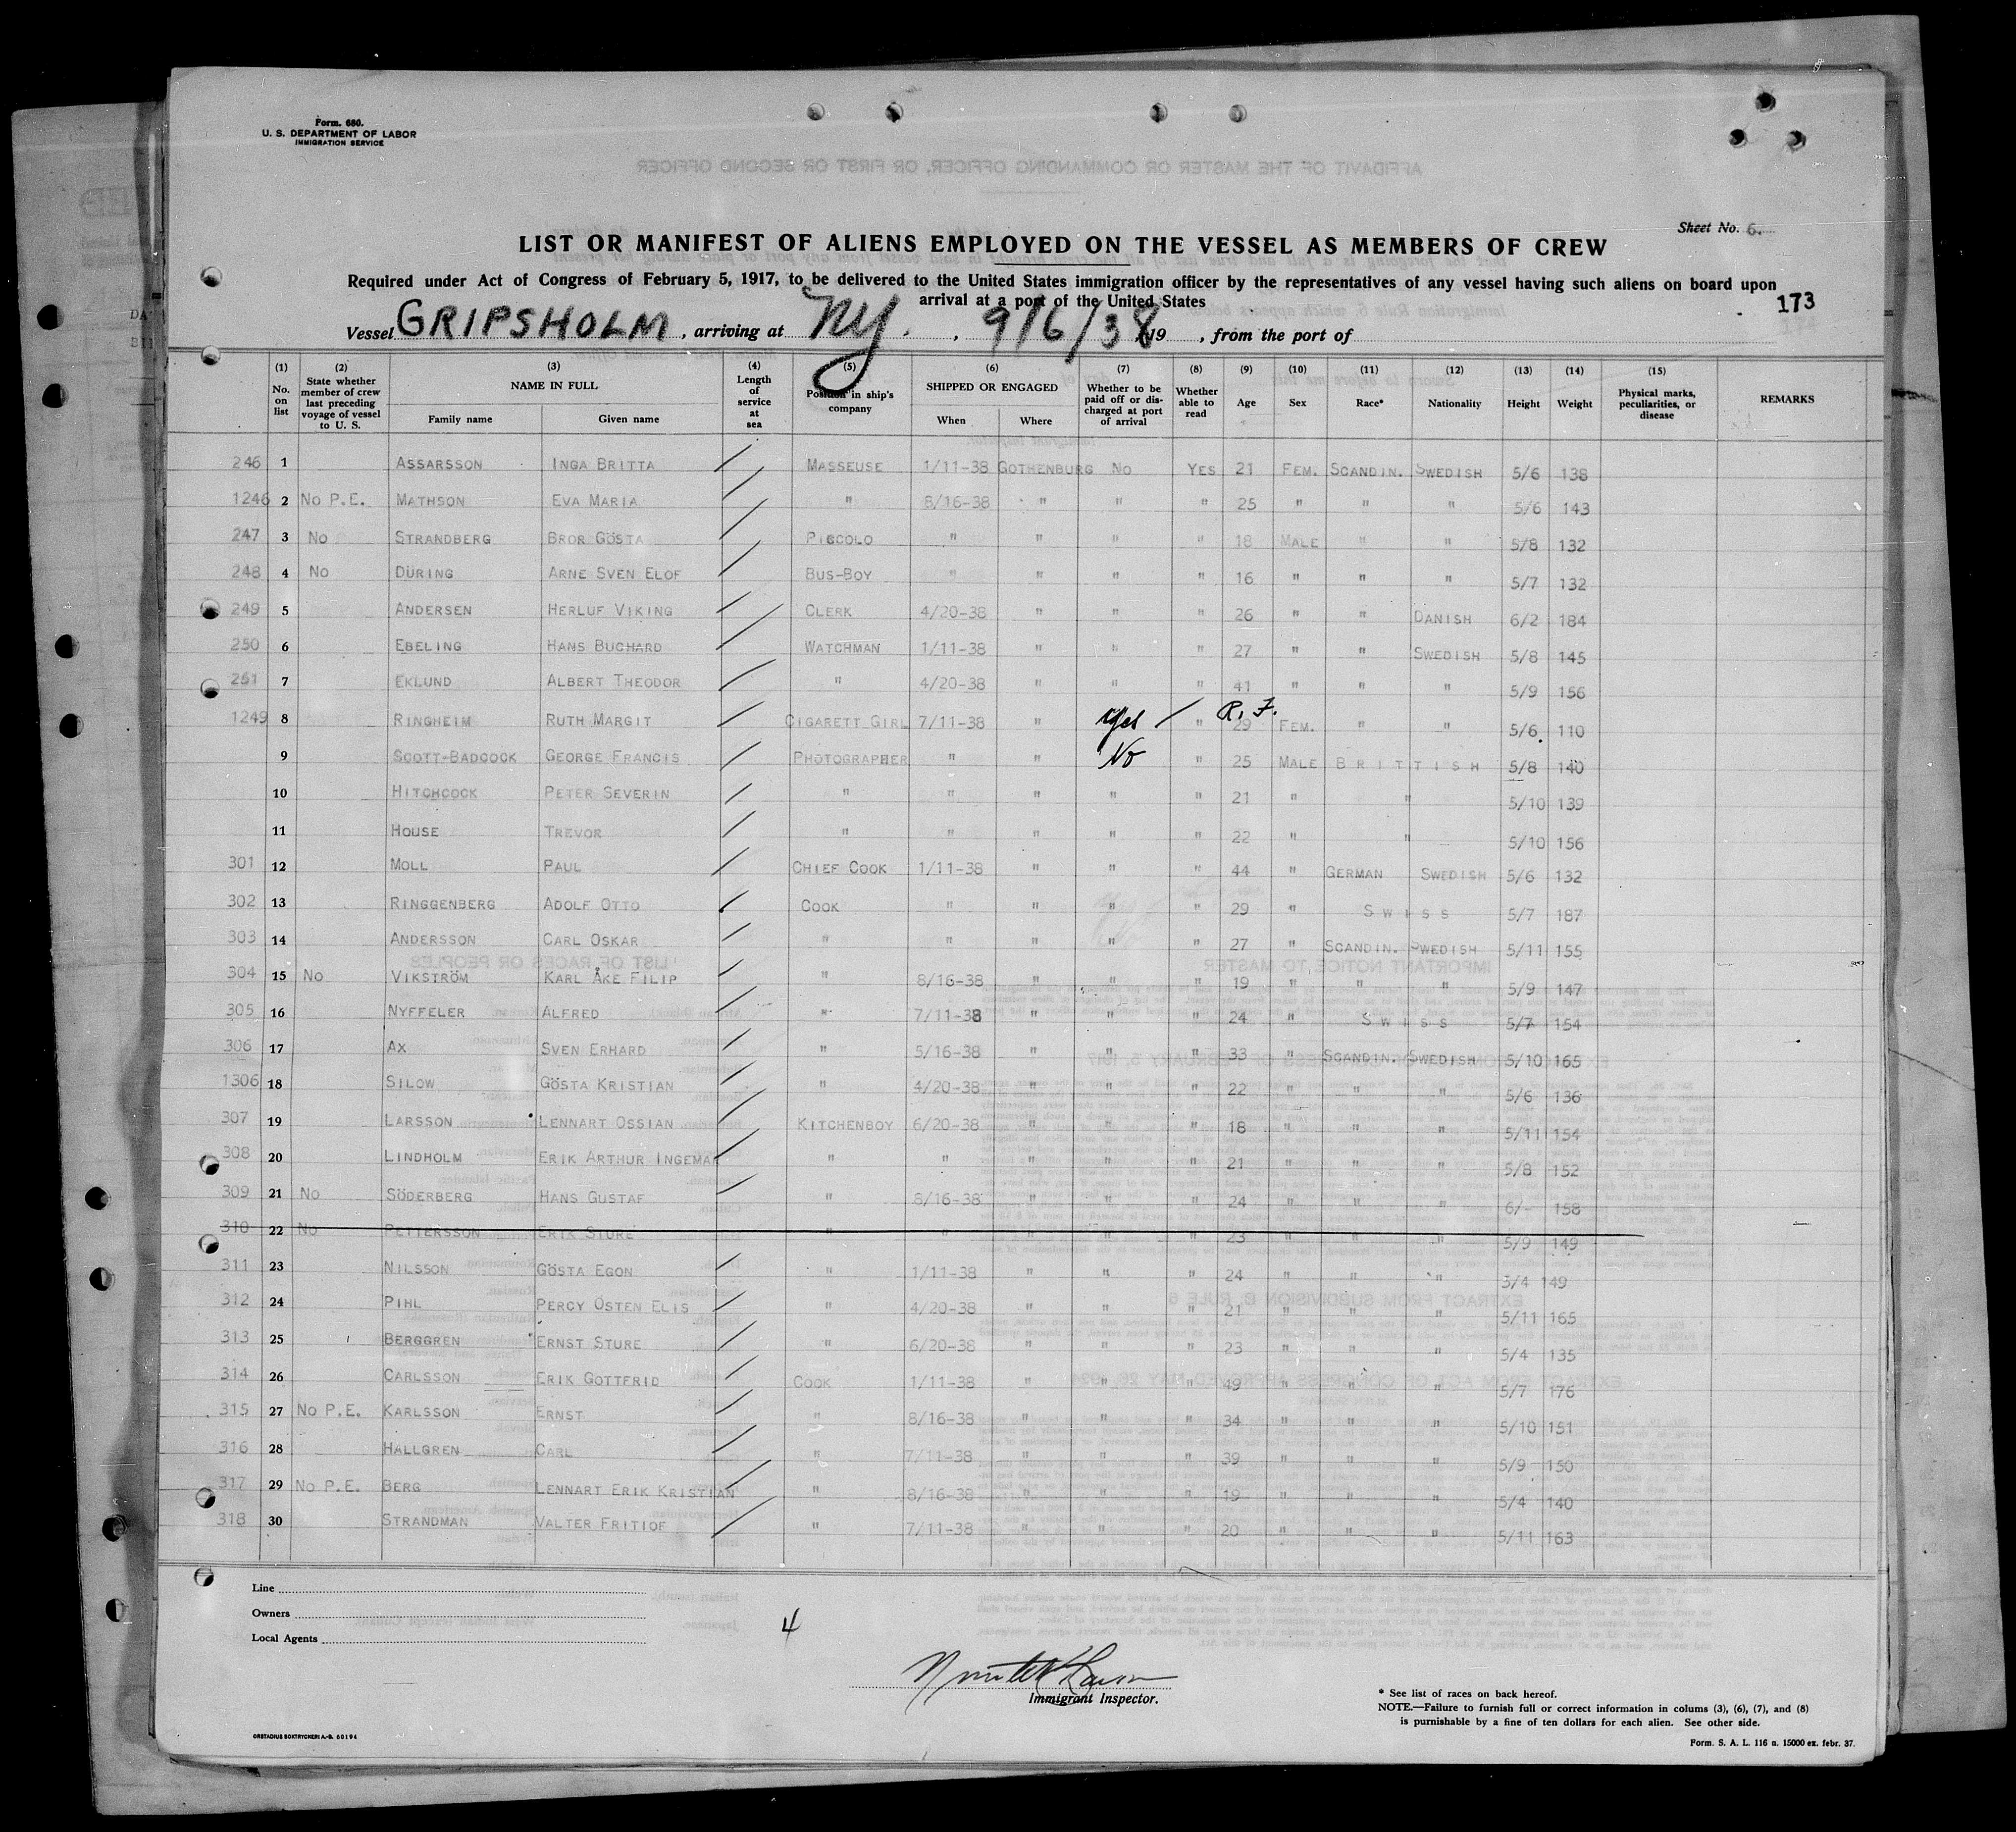 Form. 680.
U. S. DEPARTMENT OF LABOR
IMMIGRATION SERVICE
AFFIDAVIT OF THE MASTER OR COMMANDING OFFICER, OR FIRST OR SECOND OFFICER
Sheet No. 6.
LIST OR MANIFEST OF ALIENS EMPLOYED ON THE VESSEL AS MEMBERS OF CREW
Required under Act of Congress of February 5, 1917, to be delivered to the United States immigration officer by the representatives of any vessel having such aliens on board upon
arrival at a port of the United States
173
Vessel GRIPSHOLM, arriving at NY., 9/6/38 19 , from the port of
(1) No. on list (2) State whether member of crew last preceding voyage of vessel to U. S. (3) NAME IN FULL Family name Given name (4) Length of service at sea (5) Position in ship's company (6) SHIPPED OR ENGAGED When Where (7) Whether to be paid off or discharged at port of arrival (8) Whether able to read (9) Age (10) Sex (11) Race* (12) Nationality (13) Height (14) Weight (15) Physical marks, peculiarities, or disease REMARKS
246 1 ASSARSSON INGA BRITTA / MASSEUSE 1/11-38 GOTHENBURG NO YES 21 FEM. SCANDIN. SWEDISH 5/6 138
1246 2 NO P.E. MATHSON EVA MARIA / " 8/16-38 " " " 25 " " " 5/6 143
247 3 NO STRANDBERG BROR GÖSTA / PICCOLO " " " " 18 MALE " " 5/8 132
248 4 NO DÜRING ARNE SVEN ELOF / BUS-BOY " " " " 16 " " " 5/7 132
249 5 ANDERSEN HERLUF VIKING / CLERK 4/20-38 " " " 26 " " DANISH 6/2 184
250 6 EBELING HANS BUCHARD / WATCHMAN 1/11-38 " " " 27 " " SWEDISH 5/8 145
251 7 EKLUND ALBERT THEODOR / " 4/20-38 " " " 41 " " " 5/9 156
1249 8 RINGHEIM RUTH MARGIT / CIGARETT GIRL 7/11-38 " Yes / " R. F. 29 FEM. " " 5/6 110
9 SCOTT-BADCOCK GEORGE FRANCIS / PHOTOGRAPHER " " No " 25 MALE BRITTISH 5/8 140
10 HITCHCOCK PETER SEVERIN / " " " " " 21 " " 5/10 139
11 HOUSE TREVOR / " " " " " 22 " " 5/10 156
301 12 MOLL PAUL / CHIEF COOK 1/11-38 " " " 44 " GERMAN SWEDISH 5/6 132
302 13 RINGGENBERG ADOLF OTTO / COOK " " " " 29 " SWISS 5/7 187
303 14 ANDERSSON CARL OSKAR / " " " " " 27 " SCANDIN. SWEDISH 5/11 155
304 15 NO VIKSTRÖM KARL ÅKE FILIP / " 8/16-38 " " " 19 " " " 5/9 147
305 16 NYFFELER ALFRED / " 7/11-38 " " " 24 " SWISS 5/7 154
306 17 AX SVEN ERHARD / " 5/16-38 " " " 33 " SCANDIN. SWEDISH 5/10 165
1306 18 SILOW GÖSTA KRISTIAN / " 4/20-38 " " " 22 " " " 5/6 136
307 19 LARSSON LENNART OSSIAN / KITCHENBOY 6/20-38 " " " 18 " " " 5/11 154
308 20 LINDHOLM ERIK ARTHUR INGEMAR / " " " " " 21 " " " 5/8 152
309 21 NO SÖDERBERG HANS GUSTAF / " 8/16-38 " " " 24 " " " 6/- 158
310 22 NO PETTERSSON ERIK STURE " " " " " 23 " " " 5/9 149
311 23 NILSSON GÖSTA EGON / " 1/11-38 " " " 24 " " " 5/4 149
312 24 PIHL PERCY ÖSTEN ELIS / " 4/20-38 " " " 21 " " " 5/11 165
313 25 BERGGREN ERNST STURE / " 6/20-38 " " " 23 " " " 5/4 135
314 26 CARLSSON ERIK GOTTFRID / COOK 1/11-38 " " " 49 " " " 5/7 176
315 27 NO P.E. KARLSSON ERNST / " 8/16-38 " " " 34 " " " 5/10 151
316 28 HALLGREN CARL / " 7/11-38 " " " 39 " " " 5/9 150
317 29 NO P.E. BERG LENNART ERIK KRISTIAN / " 8/16-38 " " " 19 " " " 5/4 140
318 30 STRANDMAN VALTER FRITIOF / " 7/11-38 " " " 20 " " " 5/11 163
Line
Owners
Local Agents
4
Immigrant Inspector.
* See list of races on back hereof.
NOTE.—Failure to furnish full or correct information in colums (3), (6), (7), and (8)
is purnishable by a fine of ten dollars for each alien. See other side.
ORSTADIUS BOKTRYCKERI A.-B. 60194
Form. S. A. L. 116 n. 15000 ex. febr. 37.